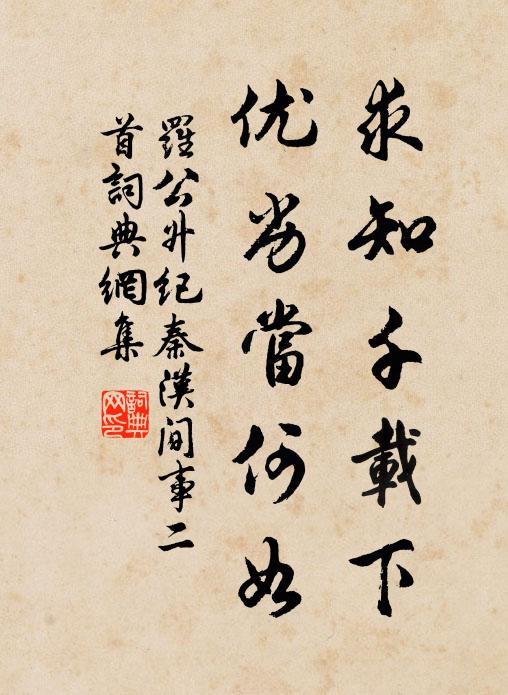 求知千載下
优劣當何如
羅公升纪秦漢间事二
首詞典網集
詞典
网印